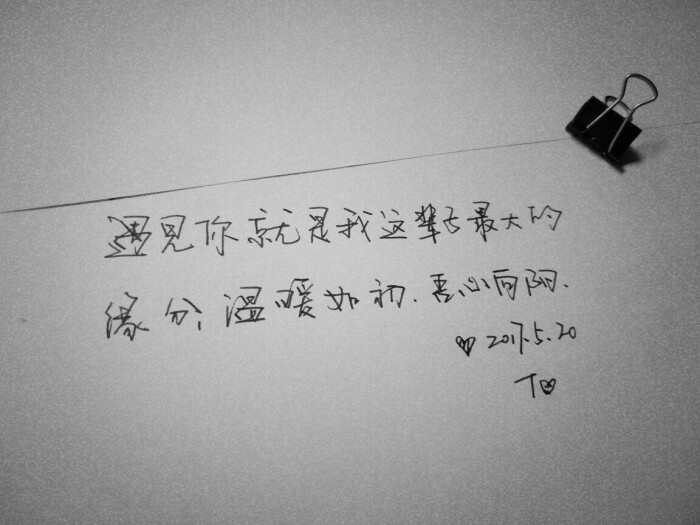 遇见你就是我这辈子最大的
缘分,温暖如初.吾心向阳.
♡2017.5.20
T♡